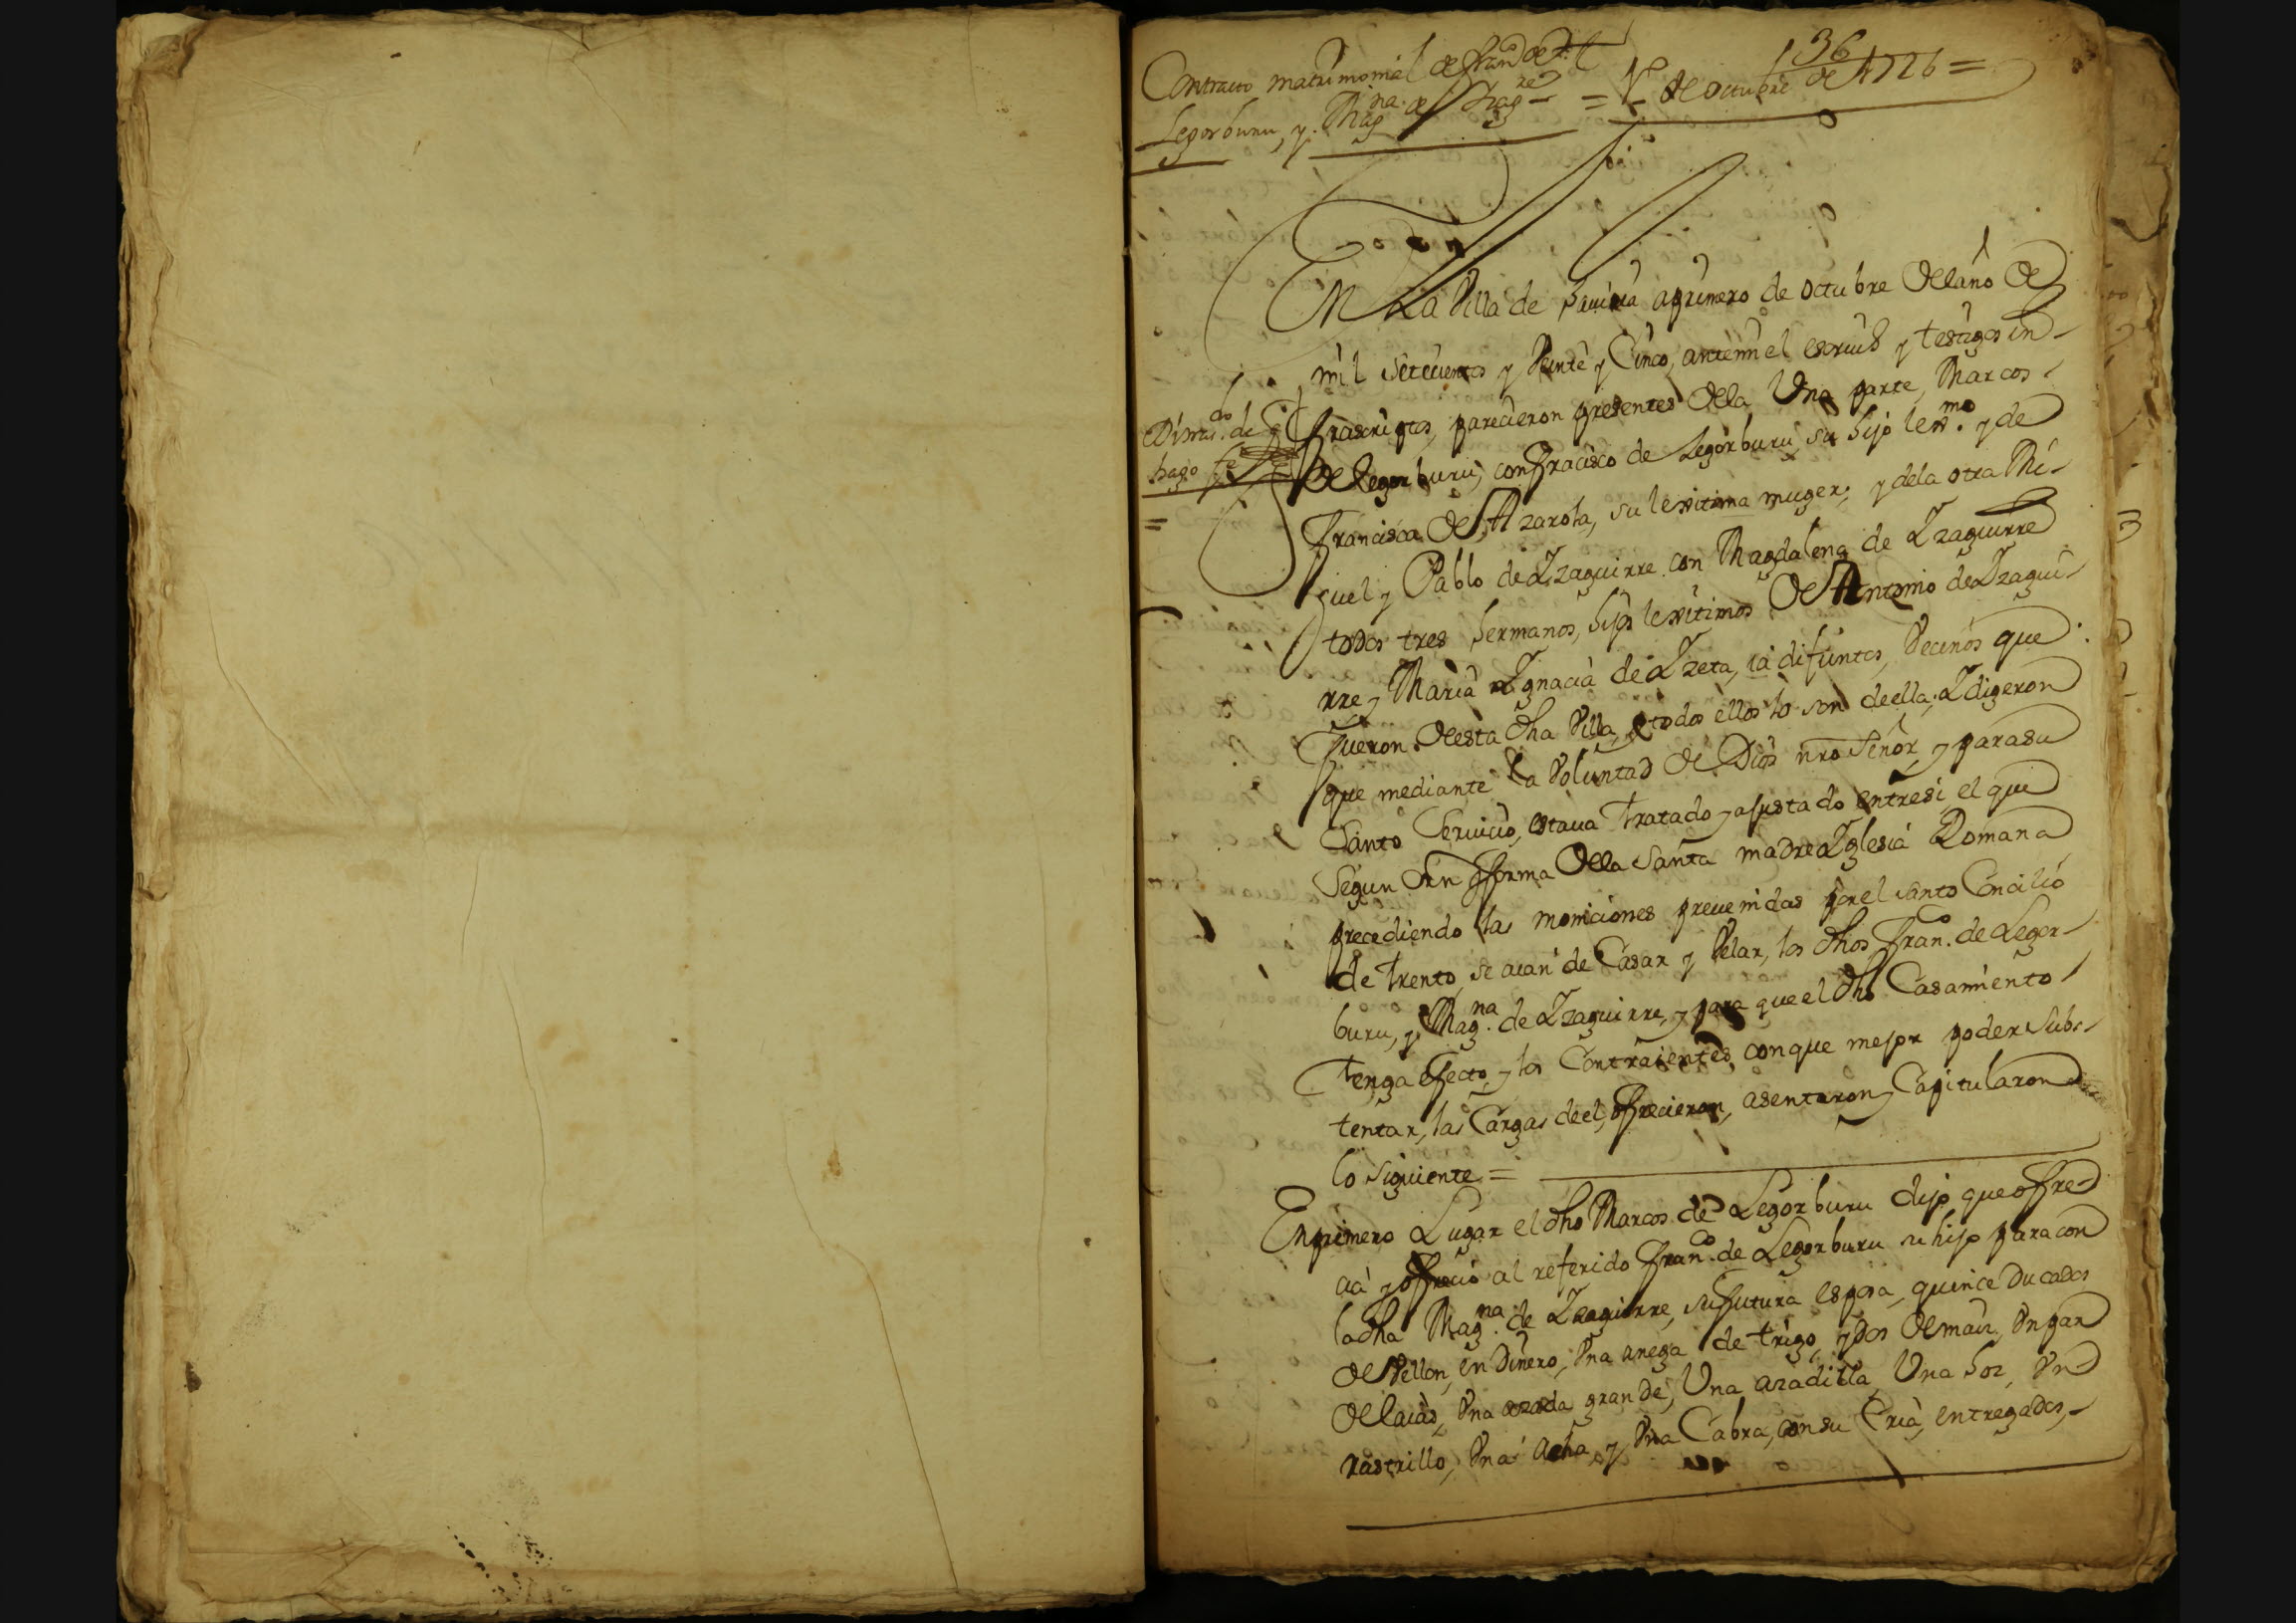 36
Contracto matrimonial de Fran.co de
Legorburu, y Mag.na de Yzag.re = 1º de octubre de 1726 =
En La Villa de a primero de octubre del año de
mil setecientos y Veinte y Cinco, antemi el escriu.o y testigos in-
frascriptos, parecieron presentes dela Una parte, Marcos
de Legorburu, con Fracisco de Legorburu, su hijo lexmo. y de
Francisca de Azarola, su lexitima muger; y dela otra Mi-
guel y Pablo de Yzaguirre con Magdalena de Yzaguirre
todos tres hermanos, hijos lexitimos de Antonio de Yzagui-
rre, y Maria Ygnacia de Yzeta, ia difuntos, Vecinos que
fueron desta dha Villa, y todos ellos lo son de ella; Y digeron
que mediante la Voluntad de Dios nro Señor, y para su
Santo Seruicio, estaua tratado y ajustado entresi, el que
Segun Orn y forma dela Santa madre Yglesia Romana
precediendo las moniciones preuenidas por el santo Concilio
de Trento, se aian de Casar y Velar, los dhos Fran.co de Legor-
buru, y Mag.na de Yzaguirre, y para que el dho Casamiento
tenga efecto, y los Contraientes, con que mejor poder Subs-
tentar, las Cargas de el, ofrecieron, asentaron y Capitularon
lo siguiente =
Dimos.do de
hago fe
=
En primero Lugar el dho Marcos de Legorburu dijo que offre-
cia y offrecio al referido Fran.co de Legorburu su hijo para con
la dha Mag.na de Yzaguirre, su futura esposa, quince Ducados
de Vellon, en Dinero, Vna anega de trigo, y dos de maiz, Vn par
de laias, Vna azada grande, Una azadilla, Una hoz, Vn
Rastrillo, Vna Acha, y Vna Cabra, con su Cria, entregados,